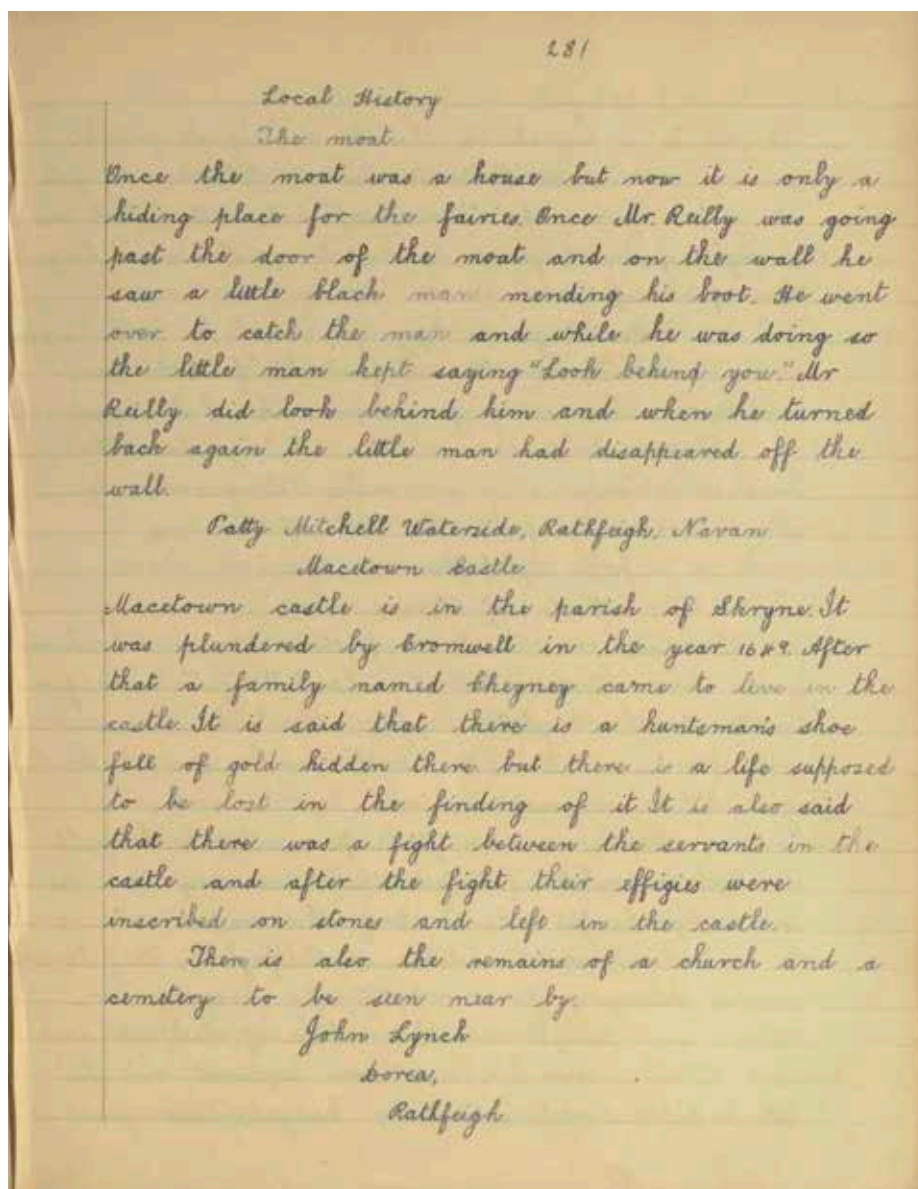 281
Local History
The moat
Once the moat was a house but now it is only a
hiding place for the fairies. Once Mr. Reilly was going
past the door of the moat and on the wall he
saw a little black man mending his boot. He went
over to catch the man and while he was doing so
the little man kept saying "Look behind you." Mr
Reilly did look behind him and when he turned
back again the little man had disappeared off the
wall.
Patty Mitchell Waterside, Rathfeigh, Navan
Macetown Castle
Macetown castle is in the parish of Skryne. It
was plundered by Cromwell in the year 1649. After
that a family named Cheyney came to live in the
castle. It is said that there is a huntsman's shoe
full of gold hidden there but there is a life supposed
to be lost in the finding of it It is also said
that there was a fight between the servants in the
castle and after the fight their effigies were
inscribed on stones and left in the castle.
There is also the remains of a church and a
cemetery to be seen near by.
John Lynch
Rathfeigh